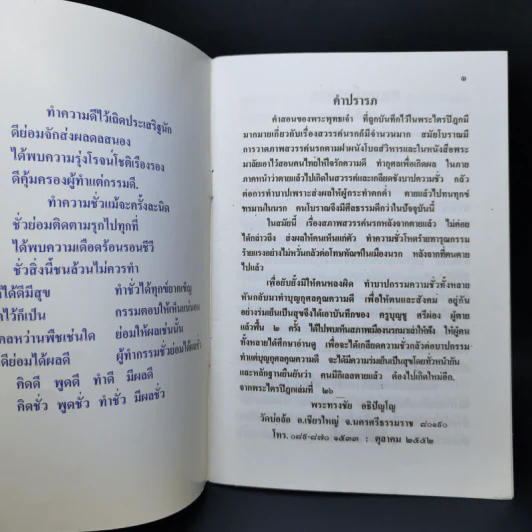 ทำความดีไว้เถิดประเสริฐนัก
ดีย่อมจักส่งผลดลสนอง
ได้พบความรุ่งโรจน์โชติเรืองรอง
ดีคุ้มครองผู้ทำแต่กรรมดี.
ทำความชั่วแม้จะครั้งละนิด
ชั่วย่อมติดตามรุกไปทุกที่
ได้พบความเดือดร้อนรอนชีวี
ชั่วสิ่งนี้ชนล้วนไม่ควรทำ
ได้ดีมีสุข ทำชั่วได้ทุกข์ยากเข็ญ
ไว้ก็เป็น กรรมตอบให้เห็นแน่นอน
หว่านพืชเช่นใด ย่อมให้ผลเช่นนั้น
ดีย่อมได้ผลดี ผู้ทำกรรมชั่วย่อมได้
คิดดี พูดดี ทำดี มีผลดี
คิดชั่ว พูดชั่ว ทำชั่ว มีผลชั่ว
๑
คำปรารภ
คำสอนของพระพุทธเจ้า ที่ถูกบันทึกไว้ในพระไตรปิฎกมี
มากมายเกี่ยวกับเรื่องสวรรค์นรกมีจำนวนมาก สมัยโบราณมี
การวาดภาพสวรรค์นรกตามฝาผนังโบสถ์วิหารและในหนังสือพระ
มาลัยเอาไว้สอนคนไทยให้ใจรักความดี ทำกุศลเพื่อเกิดผล ในภาย
ภาคหน้าว่าตายแล้วไปเกิดในสวรรค์และเกลียดชังบาปความชั่ว กลัว
ต่อการทำบาปเพราะส่งผลให้ผู้กระทำตกต่ำ ตายแล้วไปทนทุกข์
ทรมานในนรก คนโบราณจึงมีศีลธรรมดีกว่าในปัจจุบันนี้
ในสมัยนี้ เรื่องสภาพสวรรค์นรกหลังจากตายแล้ว ไม่ค่อย
ได้กล่าวถึง ส่งผลให้คนเห็นแก่ตัว ทำความชั่วโหดร้ายทารุณกรรม
ร้ายแรงอย่างไม่หวั่นกลัวต่อโทษทัณฑ์ในเมืองนรก หลังจากที่ตนตาย
ไปแล้ว
เพื่อยับยั้งมิให้คนหลงผิด ทำบาปกรรมความชั่วทั้งหลาย
หันกลับมาทำบุญกุศลคุณความดี เพื่อให้คนและสังคม อยู่กัน
อย่างร่มเย็นเป็นสุขจึงได้เอาบันทึกของ ครูบุญชู ศรีผ่อง ผู้ตาย
แล้วฟื้น ๒ ครั้ง ได้ไปพบเห็นสภาพเมืองนรกมาเล่าให้ฟัง ให้ผู้คน
ทั้งหลายได้ศึกษาอ่านดู เพื่อจะได้เกลียดความชั่วกลัวต่อบาปกรรม
ทำแต่บุญกุศลคุณความดี จะได้มีความร่มเย็นเป็นสุขโดยทั่วหน้ากัน
และหลักฐานยืนยันว่า คนมีกิเลสตายแล้ว ต้องไปเกิดใหม่อีก.
จากพระไตรปิฎกเล่มที่ ๒๖
พระทรงชัย อธิปัญโญ
วัดบ่อล้อ อ.เชียรใหญ่ จ.นครศรีธรรมราช ๘๐๑๙๐
โทร. ๐๘๙-๘๗๐ ๑๕๓๓ : ตุลาคม ๒๕๕๒